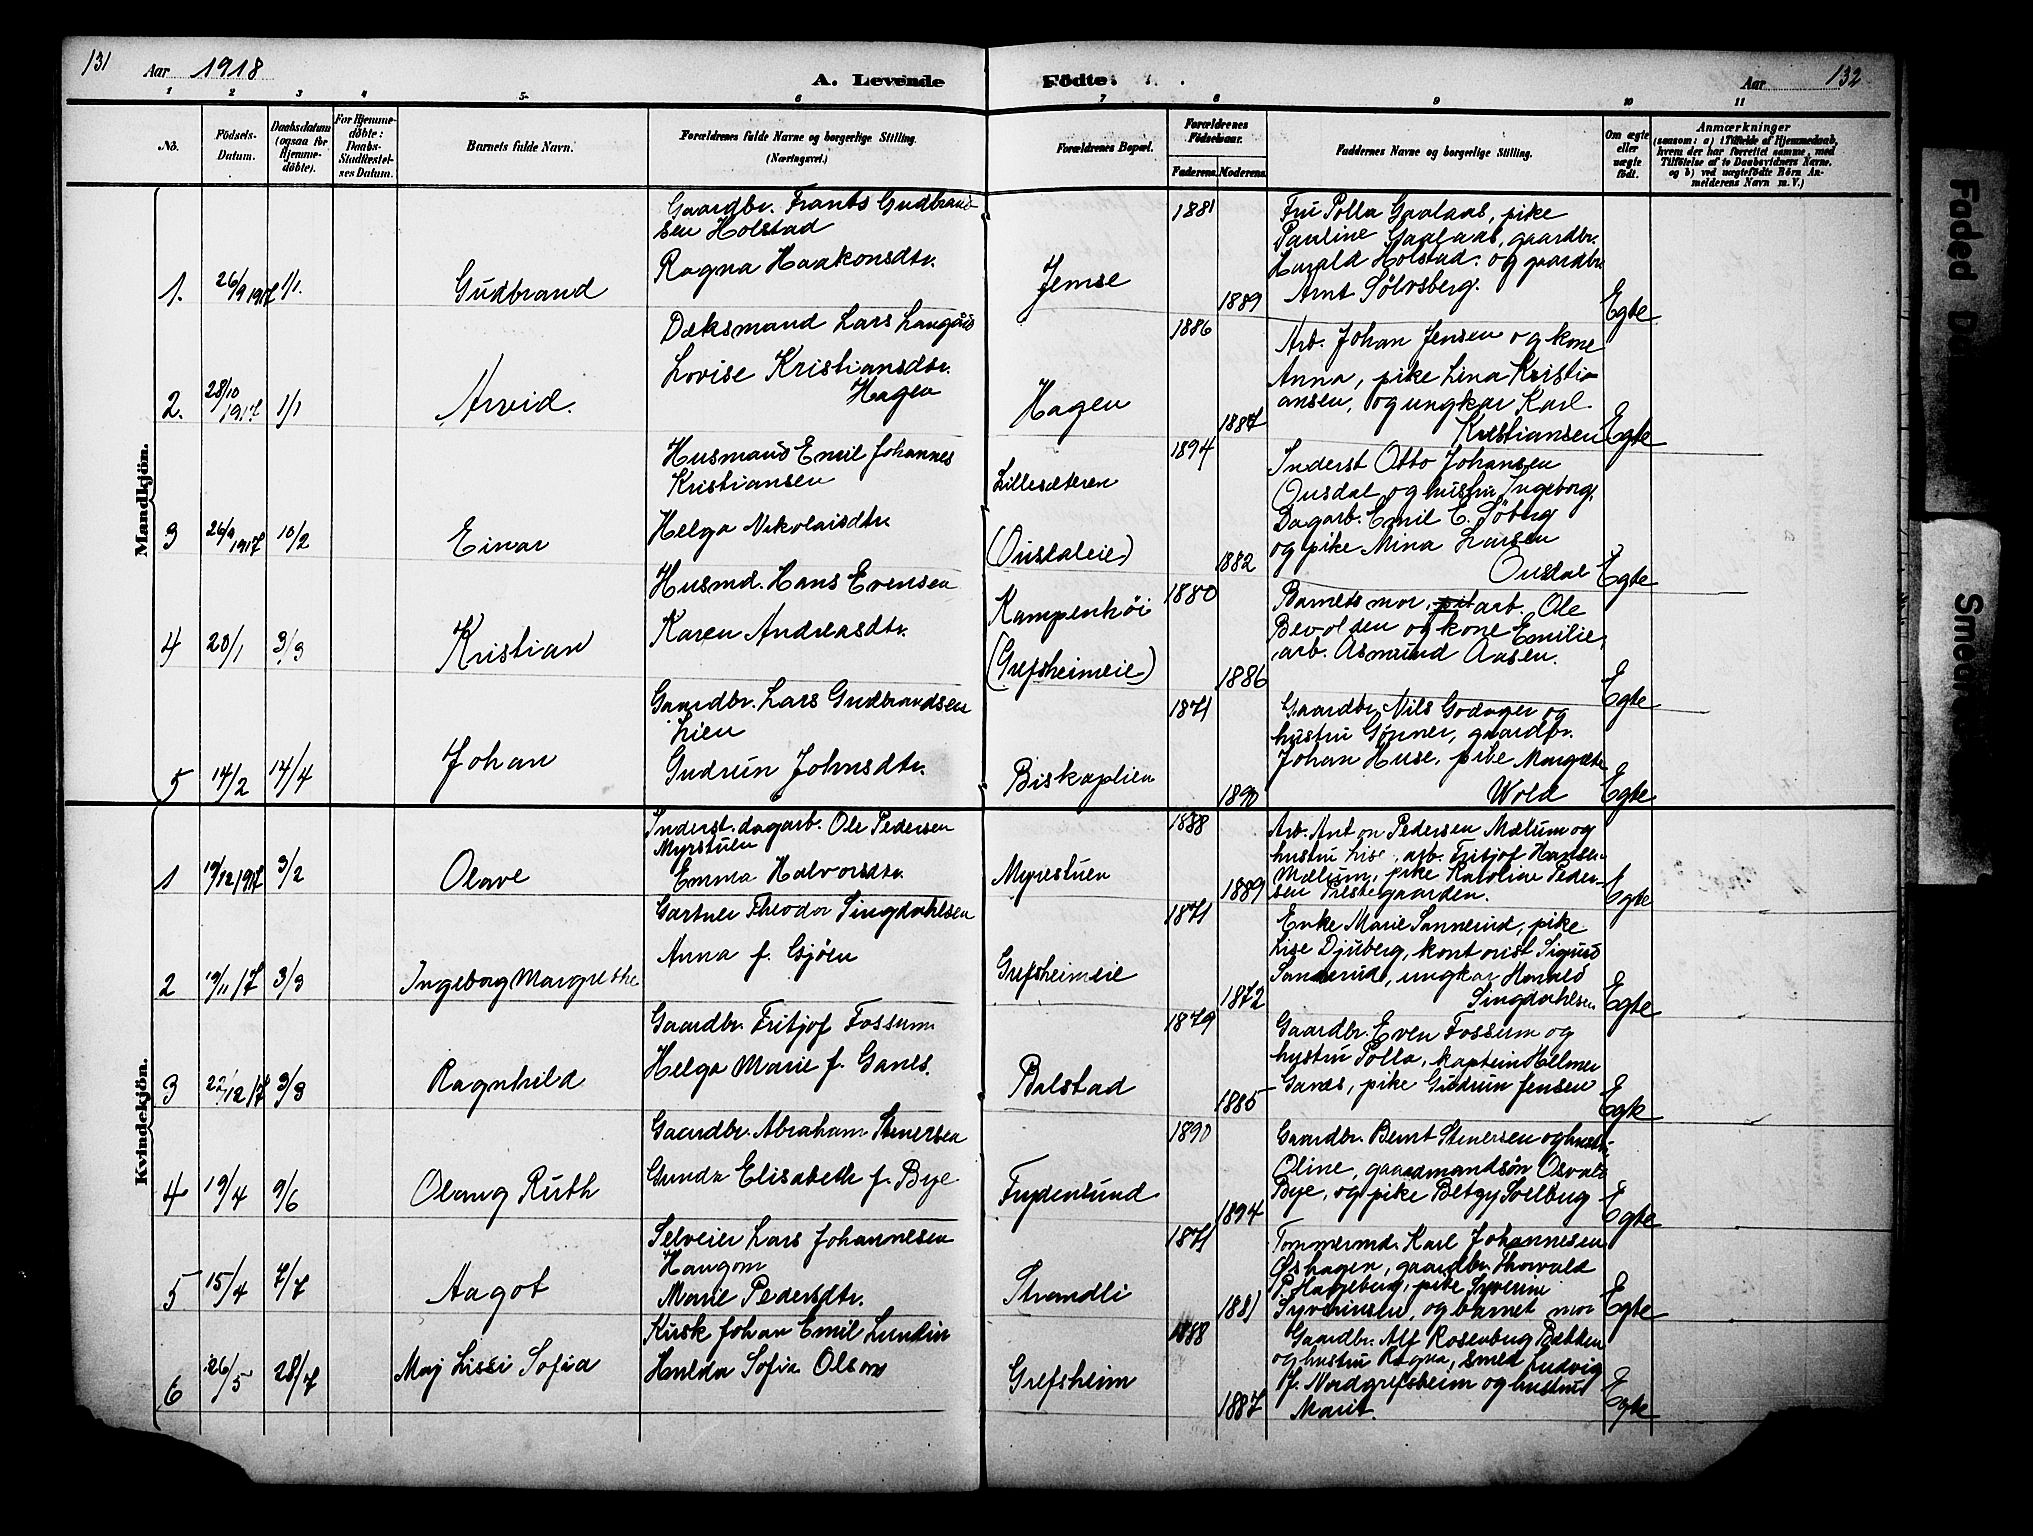 131
Aar 1918
A. Levende
Fødte.
Aar 132
1 2 3 4 5 6 7 8 9 10 11
No.
Fødsels-
Datum.
Daabsdatum
(ogsaa for
Hjemme-
døbte).
For Hjemme-
døbte:
Daabs-
Stadfæstel-
ses Datum.
Barnets fulde Navn.
Forældrenes fulde Navne og borgerlige Stilling.
(Næringsvei.)
Forældrenes Bopæl.
Forældrenes
Fødselsaar.
Faderens. Moderens.
Faddernes Navne og borgerlige Stilling.
Om ægte
eller
uægte
født.
Anmærkninger
(saasom: a) i Tilfælde af Hjemmedaab,
hvem der har forrettet samme, med
Tilføielse af to Daabsvidners Navne.
og b) ved uægtefødte Børn An-
melderens Navn m. V.)
Mandkjøn.
1. 26/9 1917 1/1.
Gudbrand
Gaardbr. Frants Gudbrand
sen Holstad
Ragna Haakonsdtr.
Jemse
1881
1889
Fru Polla Gaalaas, pike
Pauline Gaalaas, gaardbr.
Harald Holstad. og gaardbr
Arnt Sølvsberg.
Egte
2. 28/10 1917 1/1
Arvid.
Dæksmand Lars
Lovise Kristiansdtr.
Hagen
Hagen
1886
1887
Arb. Johan Jensen og kone
Anna, pike Lina Kristi
ansen, og ungkar Karl
Kristiansen
Egte
3 26/9 1917 10/2
Einar
Husmand Emil Johannes
Kristiansen
Helga Nikolaisdtr
Lillesæteren
(Ousdaleie)
1894
1882
Inderst Otto Johansen
Ousdal og hustru Ingeborg,
Dagarb. Emil E. Søberg
og pike Mina Larsen
Ousdal
Egte
4 20/1 3/3
Kristian
Husmd. Hans Evensen
Karen Andreasdtr.
Kampenhøi
(Grefsheimeie)
1880
1886
Barnets mor, arb. Ole
Bevolden og kone Emilie,
arb. Asmund Aasen.
Egte
5 14/2 14/4
Johan
Gaardbr. Lars Gudbrandsen
Lien
Gudrun Johnsdtr.
Biskoplien
1871
1890
Gaardbr. Nils Godager og
hustru Gønner, gaardbr.
Johan Huse, pike Margrete
Wold
Egte
Kvindekjøn.
1 19/12 1917 3/2
Olave
Inderst. dagarb. Ole Pedersen
Myrstuen
Emma Halvorsdtr.
Myrestuen
1888
1889
Arb. Anton Pedersen Mælum og
hustru Lise, arb. Fritjof Hansen
Mælum, pike Karoline Peder-
sen Prestegaarden.
Egte
2 19/11/17 3/3
Ingeborg Margrethe
Gartner Theodor Singdahlsen
Anna f. Gjøen
Grefsheimeie
1871
1872
Enke Marie Sannerud, pike
Lise Djuberg, kontorist Sigurd
Sannerud, ungkar Harald
Singdahlsen
Egte
3 22/12/17 3/3
Ragnhild
Gaardbr. Fritjof Fossum
Helga Marie f. Ganes.
Balstad
1879
1885
Gaardbr. Even Fossum og
hustru Polla, kaptein Helmer
Ganes, pike Gudrun Jensen
Egte
4 19/4 9/6
Olaug Ruth
Gaardbr. Abraham Stenersen
Gunda Elisabeth f. Bye
Frydenlund
1890
1894
Gaardbr. Bernt Stenersen og hustr.
Oline, gaardmandsøn Osvald
Bye, og pike Betzy Solberg
Egte
5 15/4 7/7
Aagot
Selveier Lars Johannesen
Haugom
Marie Pedersdtr.
Strandli
1871
1881
Tømmermd. Karl Johannesen
Øshagen, gaardbr. Thorvald
P. Hageberg, pike Syverine
Syverinsen, og barnet mor
Egte
6 26/5 28/7
Maj Lissi Sofia
Kusk Johan Emil Lundin
Hulda Sofia Olson
Grefsheim
1888
1887
Gaardbr. Alf Rosenberg Bakken
og hustru Ragna, smed Ludvig
J. Nordgrefsheim og hustru
Marit.
Egte
Faded D
Smed